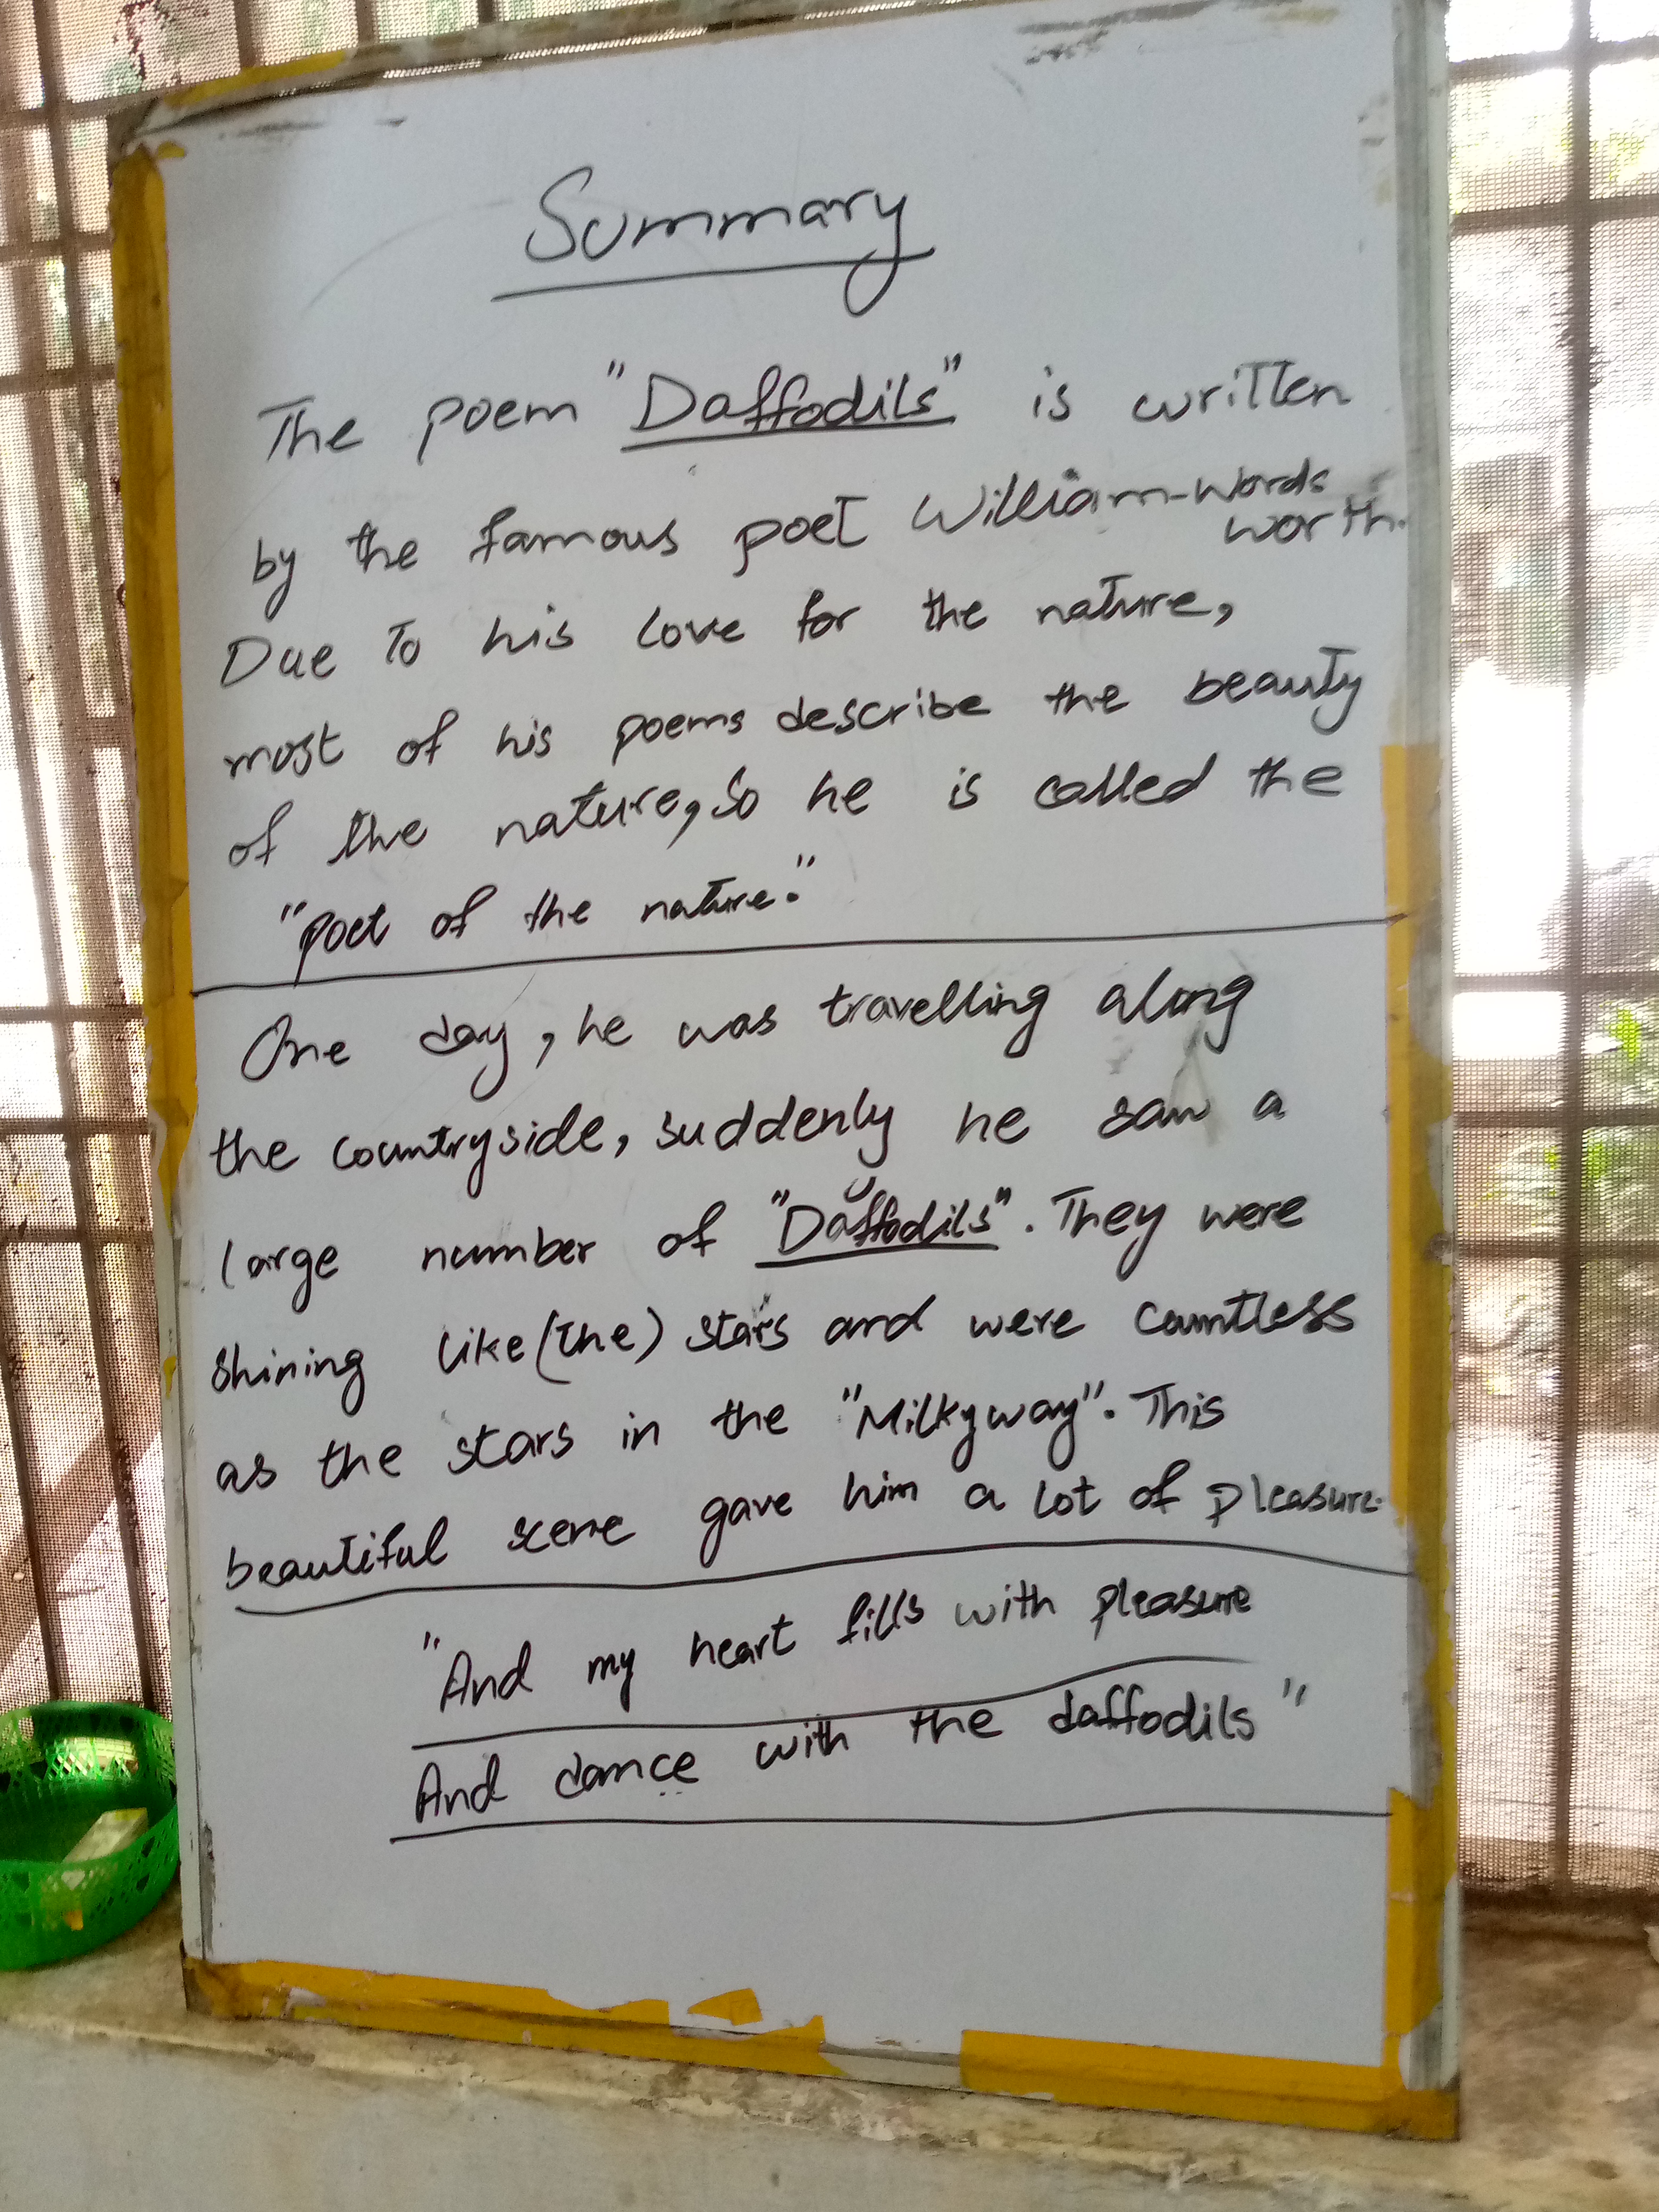 Summary
The poem "Daffodils" is written
by the famous poet William-Words
worth.
Due to his love for the nature,
most of his poems describe the beauty
of the nature, so he is called the
"poet of the nature."
One day, he was travelling along
the countryside, suddenly he saw a
large number of "Daffodils". They were
shining like (the) stars and were countless
as the stars in the "Milkyway". This
beautiful scene gave him a lot of pleasure.
"And my heart fills with pleasure
And dance with the daffodils"